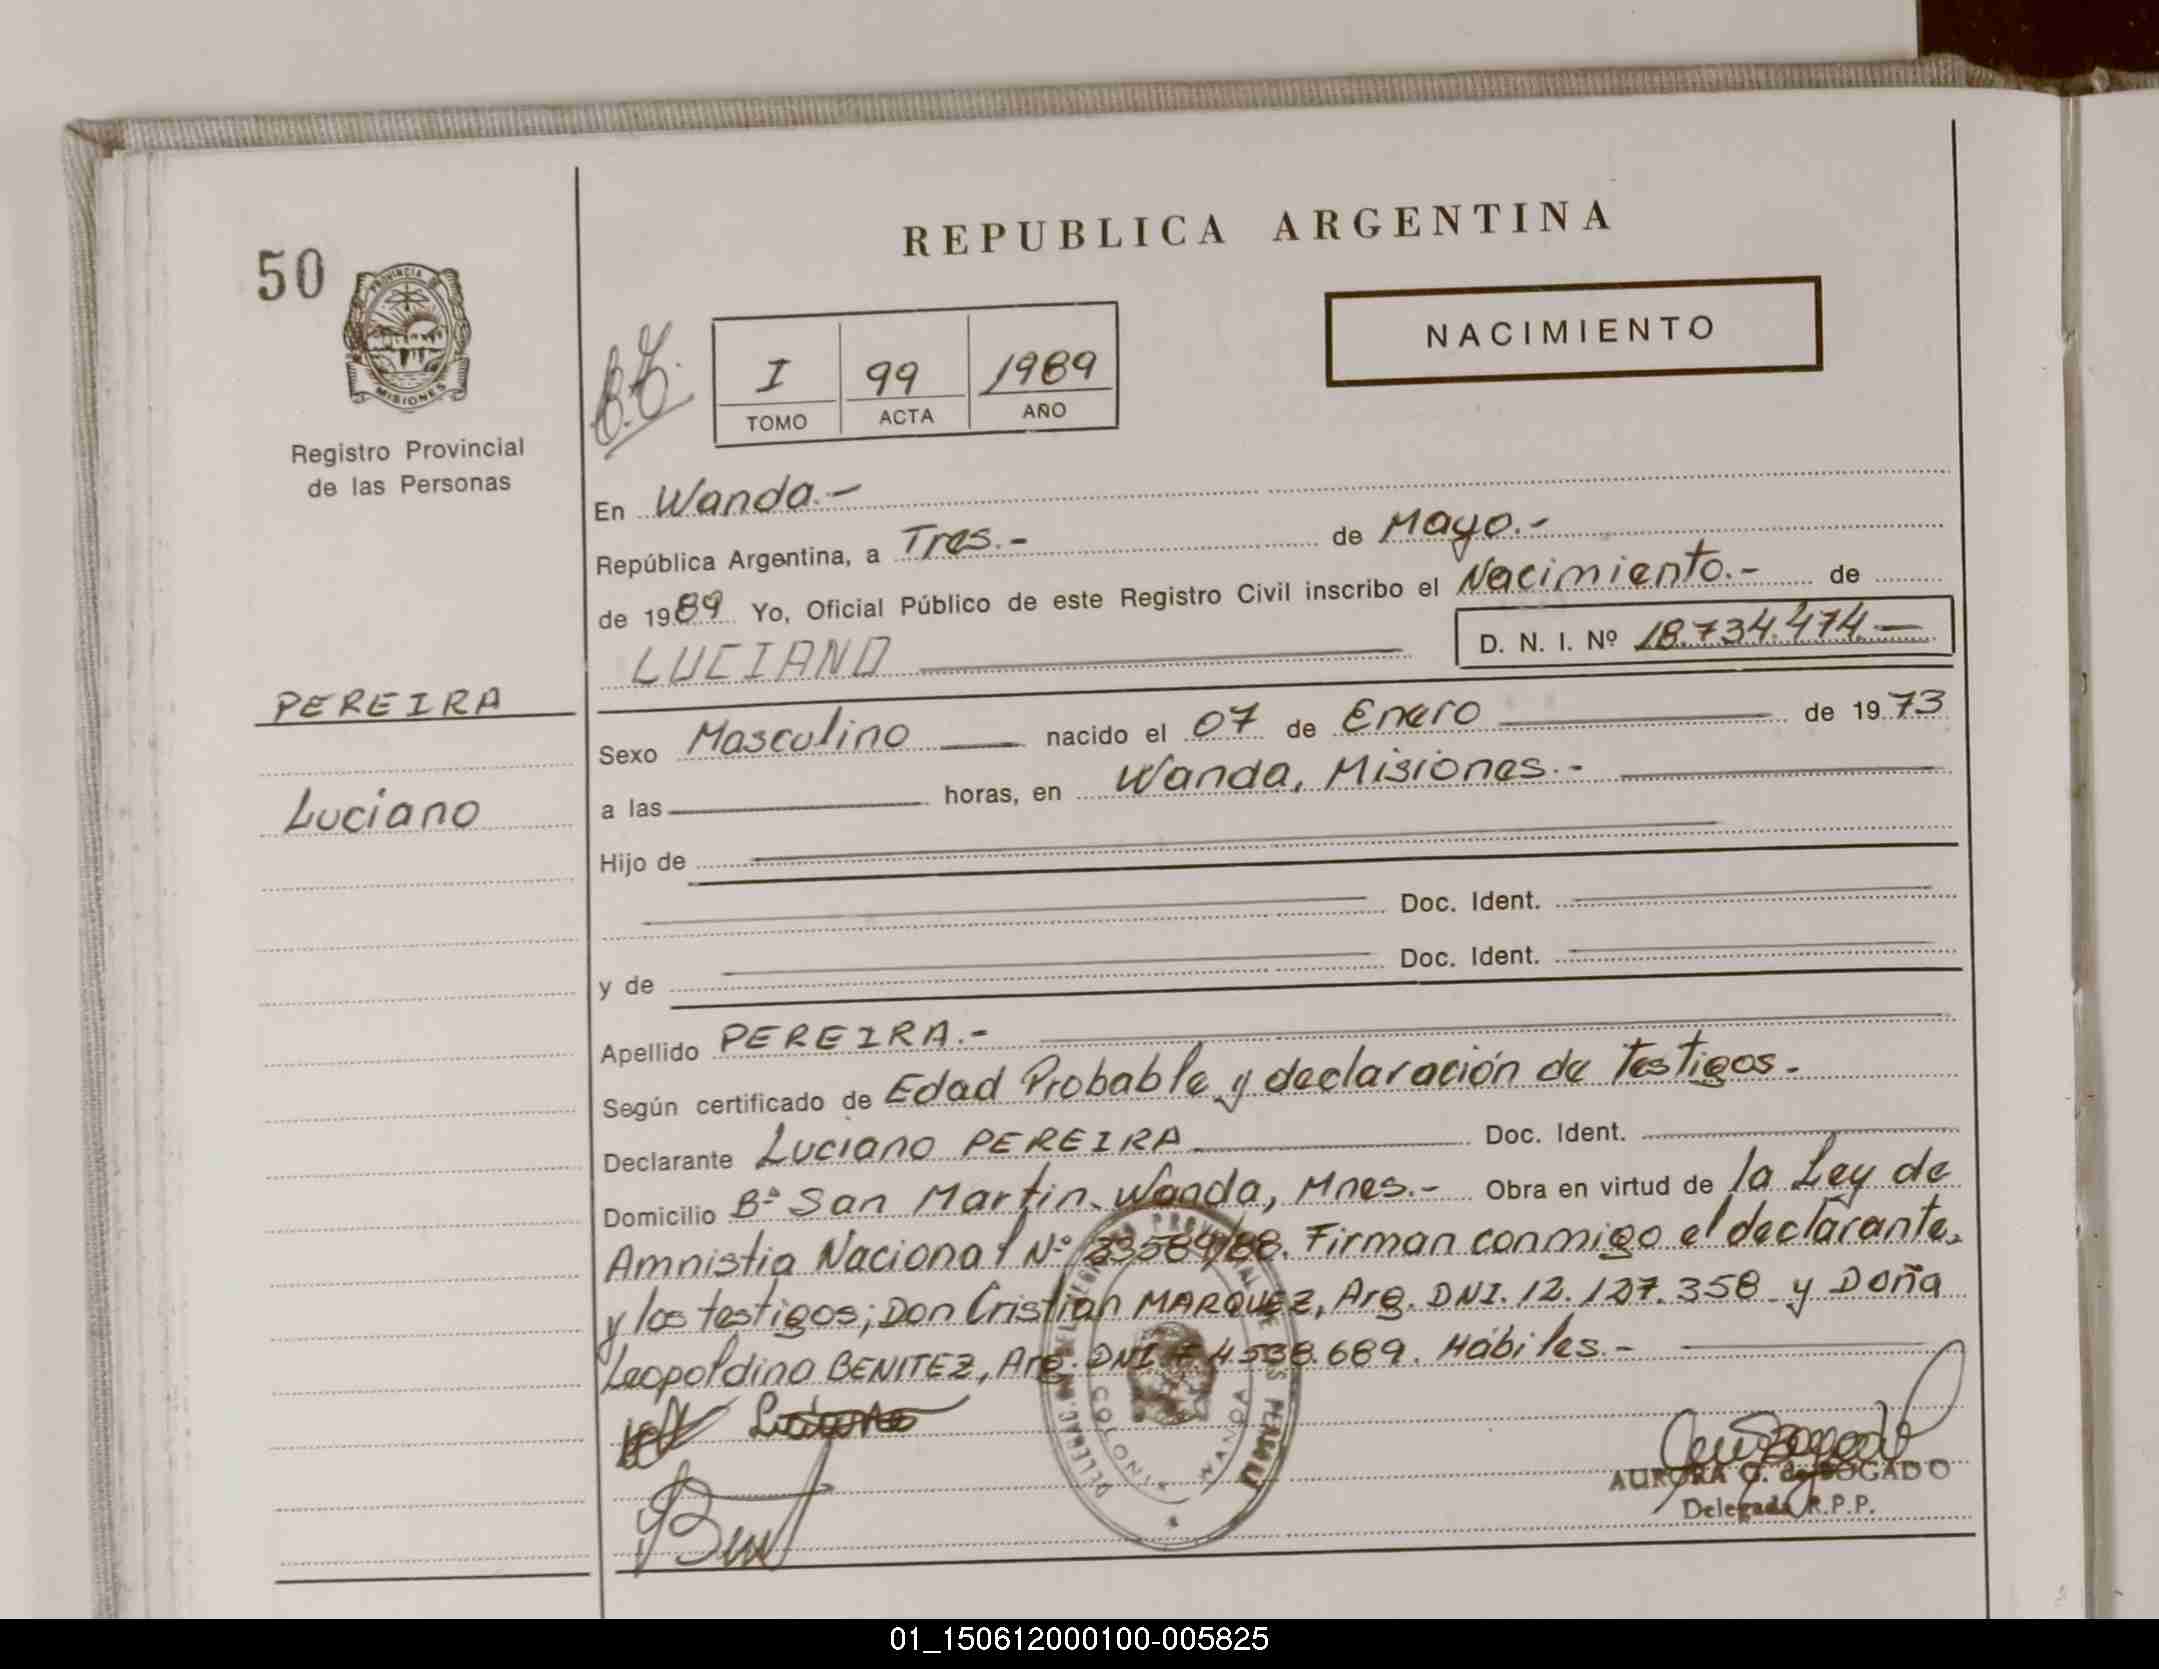 REPUBLICA ARGENTINA
50
PROVINCIA DE
MISIONES
Registro Provincial
de las Personas
NACIMIENTO
I 99 1989
TOMO ACTA AÑO
En Wanda.-
República Argentina, a Tres.- de Mayo.-
de 1989 Yo, Oficial Público de este Registro Civil inscribo el Nacimiento.- de
LUCIANO D. N. I. Nº 18.734.474.-
PEREIRA
Luciano
Sexo Masculino nacido el 07 de Enero de 1973
a las horas, en Wanda, Misiones.-
Hijo de
Doc. Ident.
y de Doc. Ident.
Apellido PEREIRA.-
Según certificado de Edad Probable y declaración de testigos.-
Declarante Luciano PEREIRA Doc. Ident.
Domicilio Bº San Martin. Wanda, Mnes.- Obra en virtud de la Ley de
Amnistia Nacional Nº /88. Firman conmigo el declarante,
y los testigos; Don Cristian MARQUEZ, Arg. DNI. 12.127.358 y Doña
Leopoldina BENITEZ, Arg. DNI 4538.689. Hábiles.-
COLONIA WANDA
AURORA G. de BOGADO
Delegada R.P.P.
01_150612000100-005825